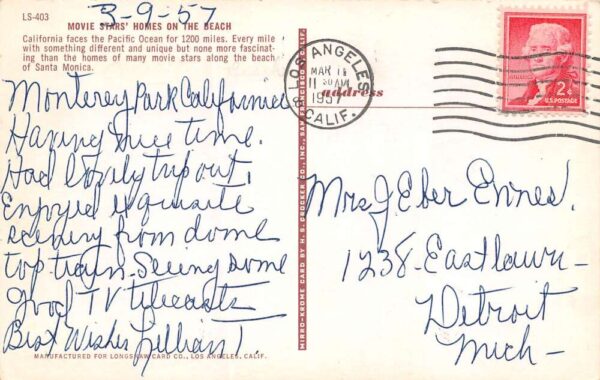 LS-403
3-9-57
MOVIE STARS' HOMES ON THE BEACH
California faces the Pacific Ocean for 1200 miles. Every mile
with something different and unique but none more fascinat-
ing than the homes of many movie stars along the beach
of Santa Monica.
Monterey Park California
Having nice time.
Had lovely trip out,
Enjoyed exquisite
scenery from dome
top train. Seeing some
good TV telecasts
Best Wishes Lillian T.
MANUFACTURED FOR LONGSHAW CARD CO., LOS ANGELES, CALIF.
MIRRO-KROME CARD BY H. S. CROCKER CO., INC., SAN FRANCISCO, CALIF.
LOS ANGELES
MAR 11
11 30 AM
1957
CALIF.
address
2¢
U.S. POSTAGE
Mrs J Eber Ennes.
1238-Eastlawn-
Detroit
Mich-